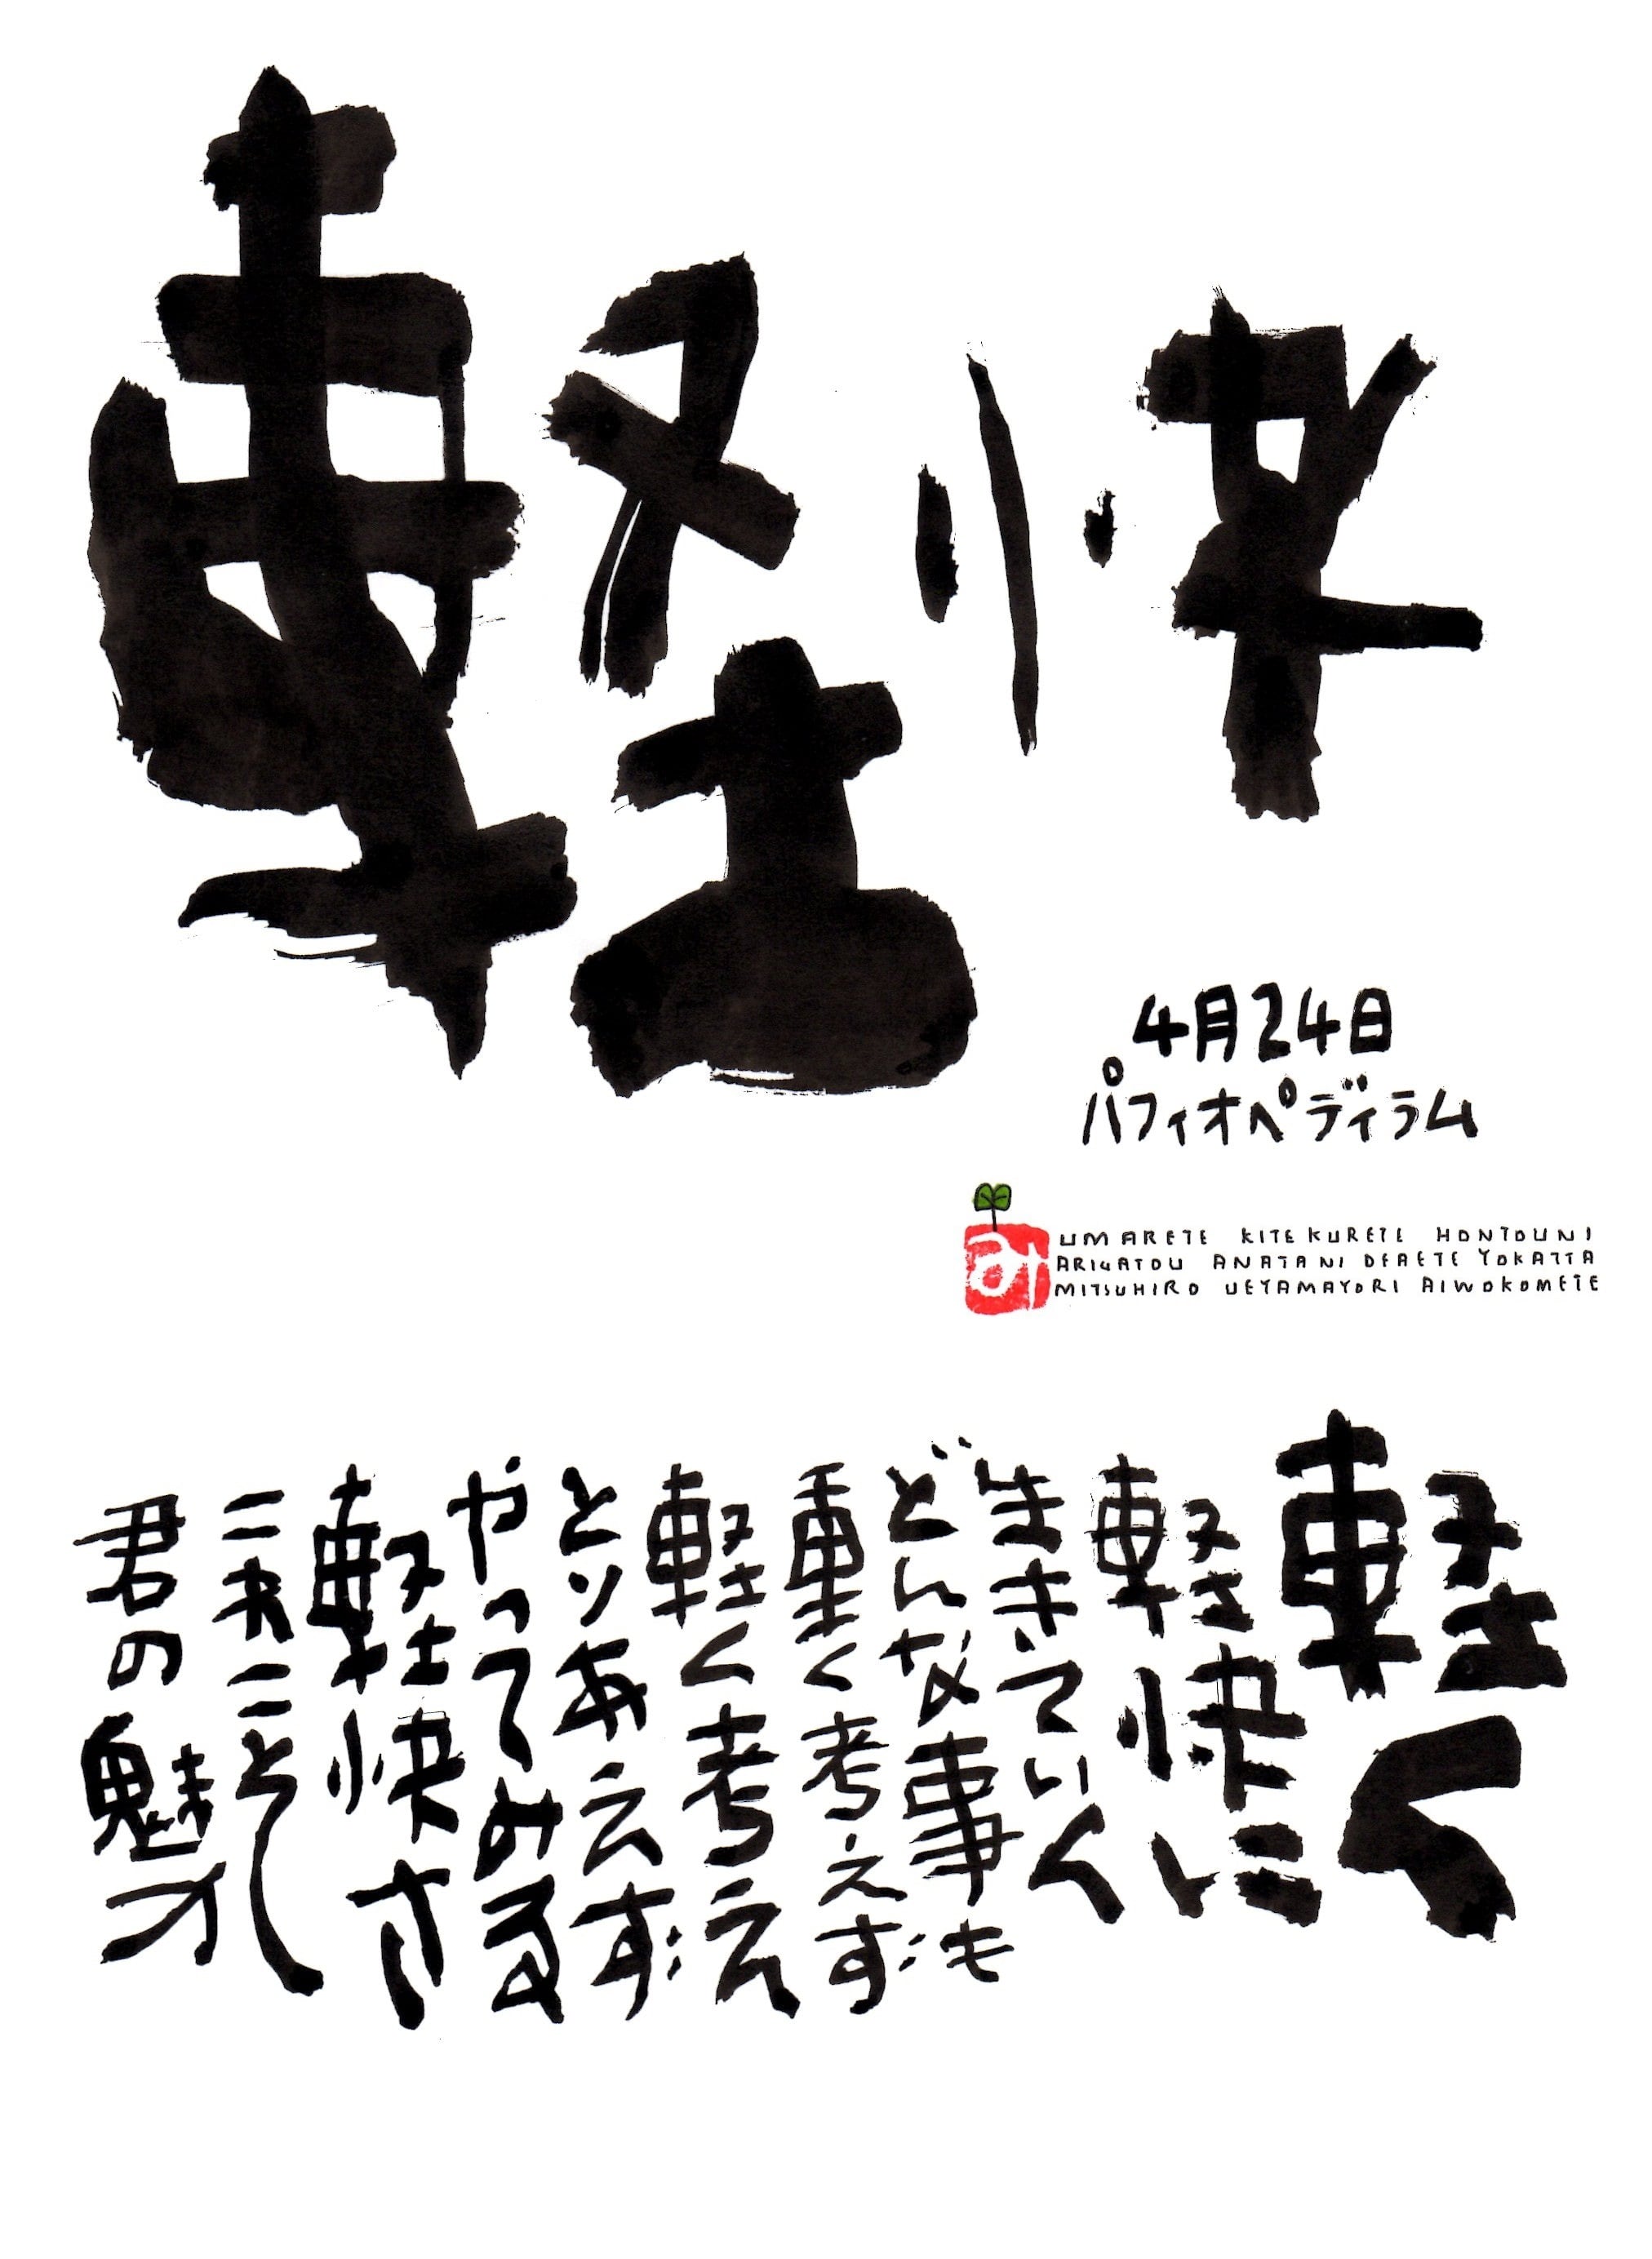 軽快
4月24日
パフィオペディラム
ai
UMARETE KITEKURETE HONTOUNI
ARIGATOU ANATANI DEAETE YOKATTA
MITSUHIRO UEYAMAYORI AIWOKOMETE
軽く
軽快に
生きていく
どんな事も
重く考えず
軽く考え
とりあえず
やってみる
軽快さ
これこそ
君の魅力